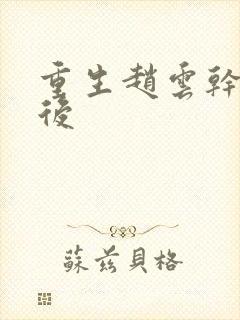 重生趙雲幹
後
蘇茲貝格